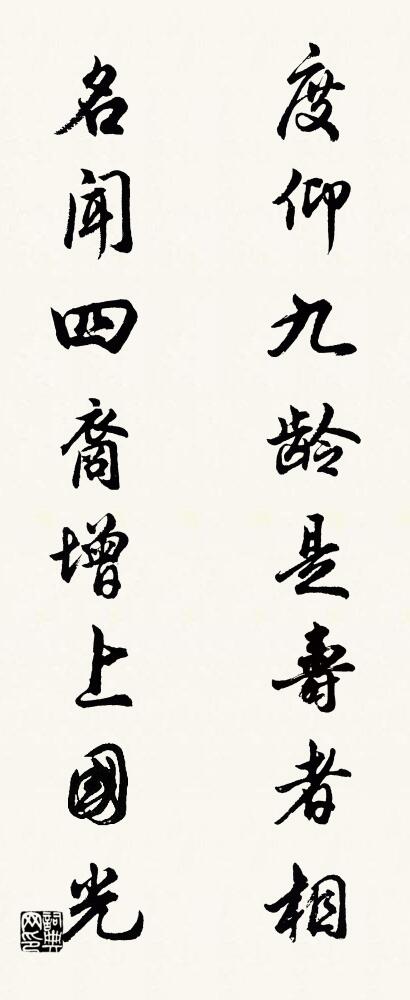 度仰九龄是寿者相
名闻四裔增上國光
詞典网印